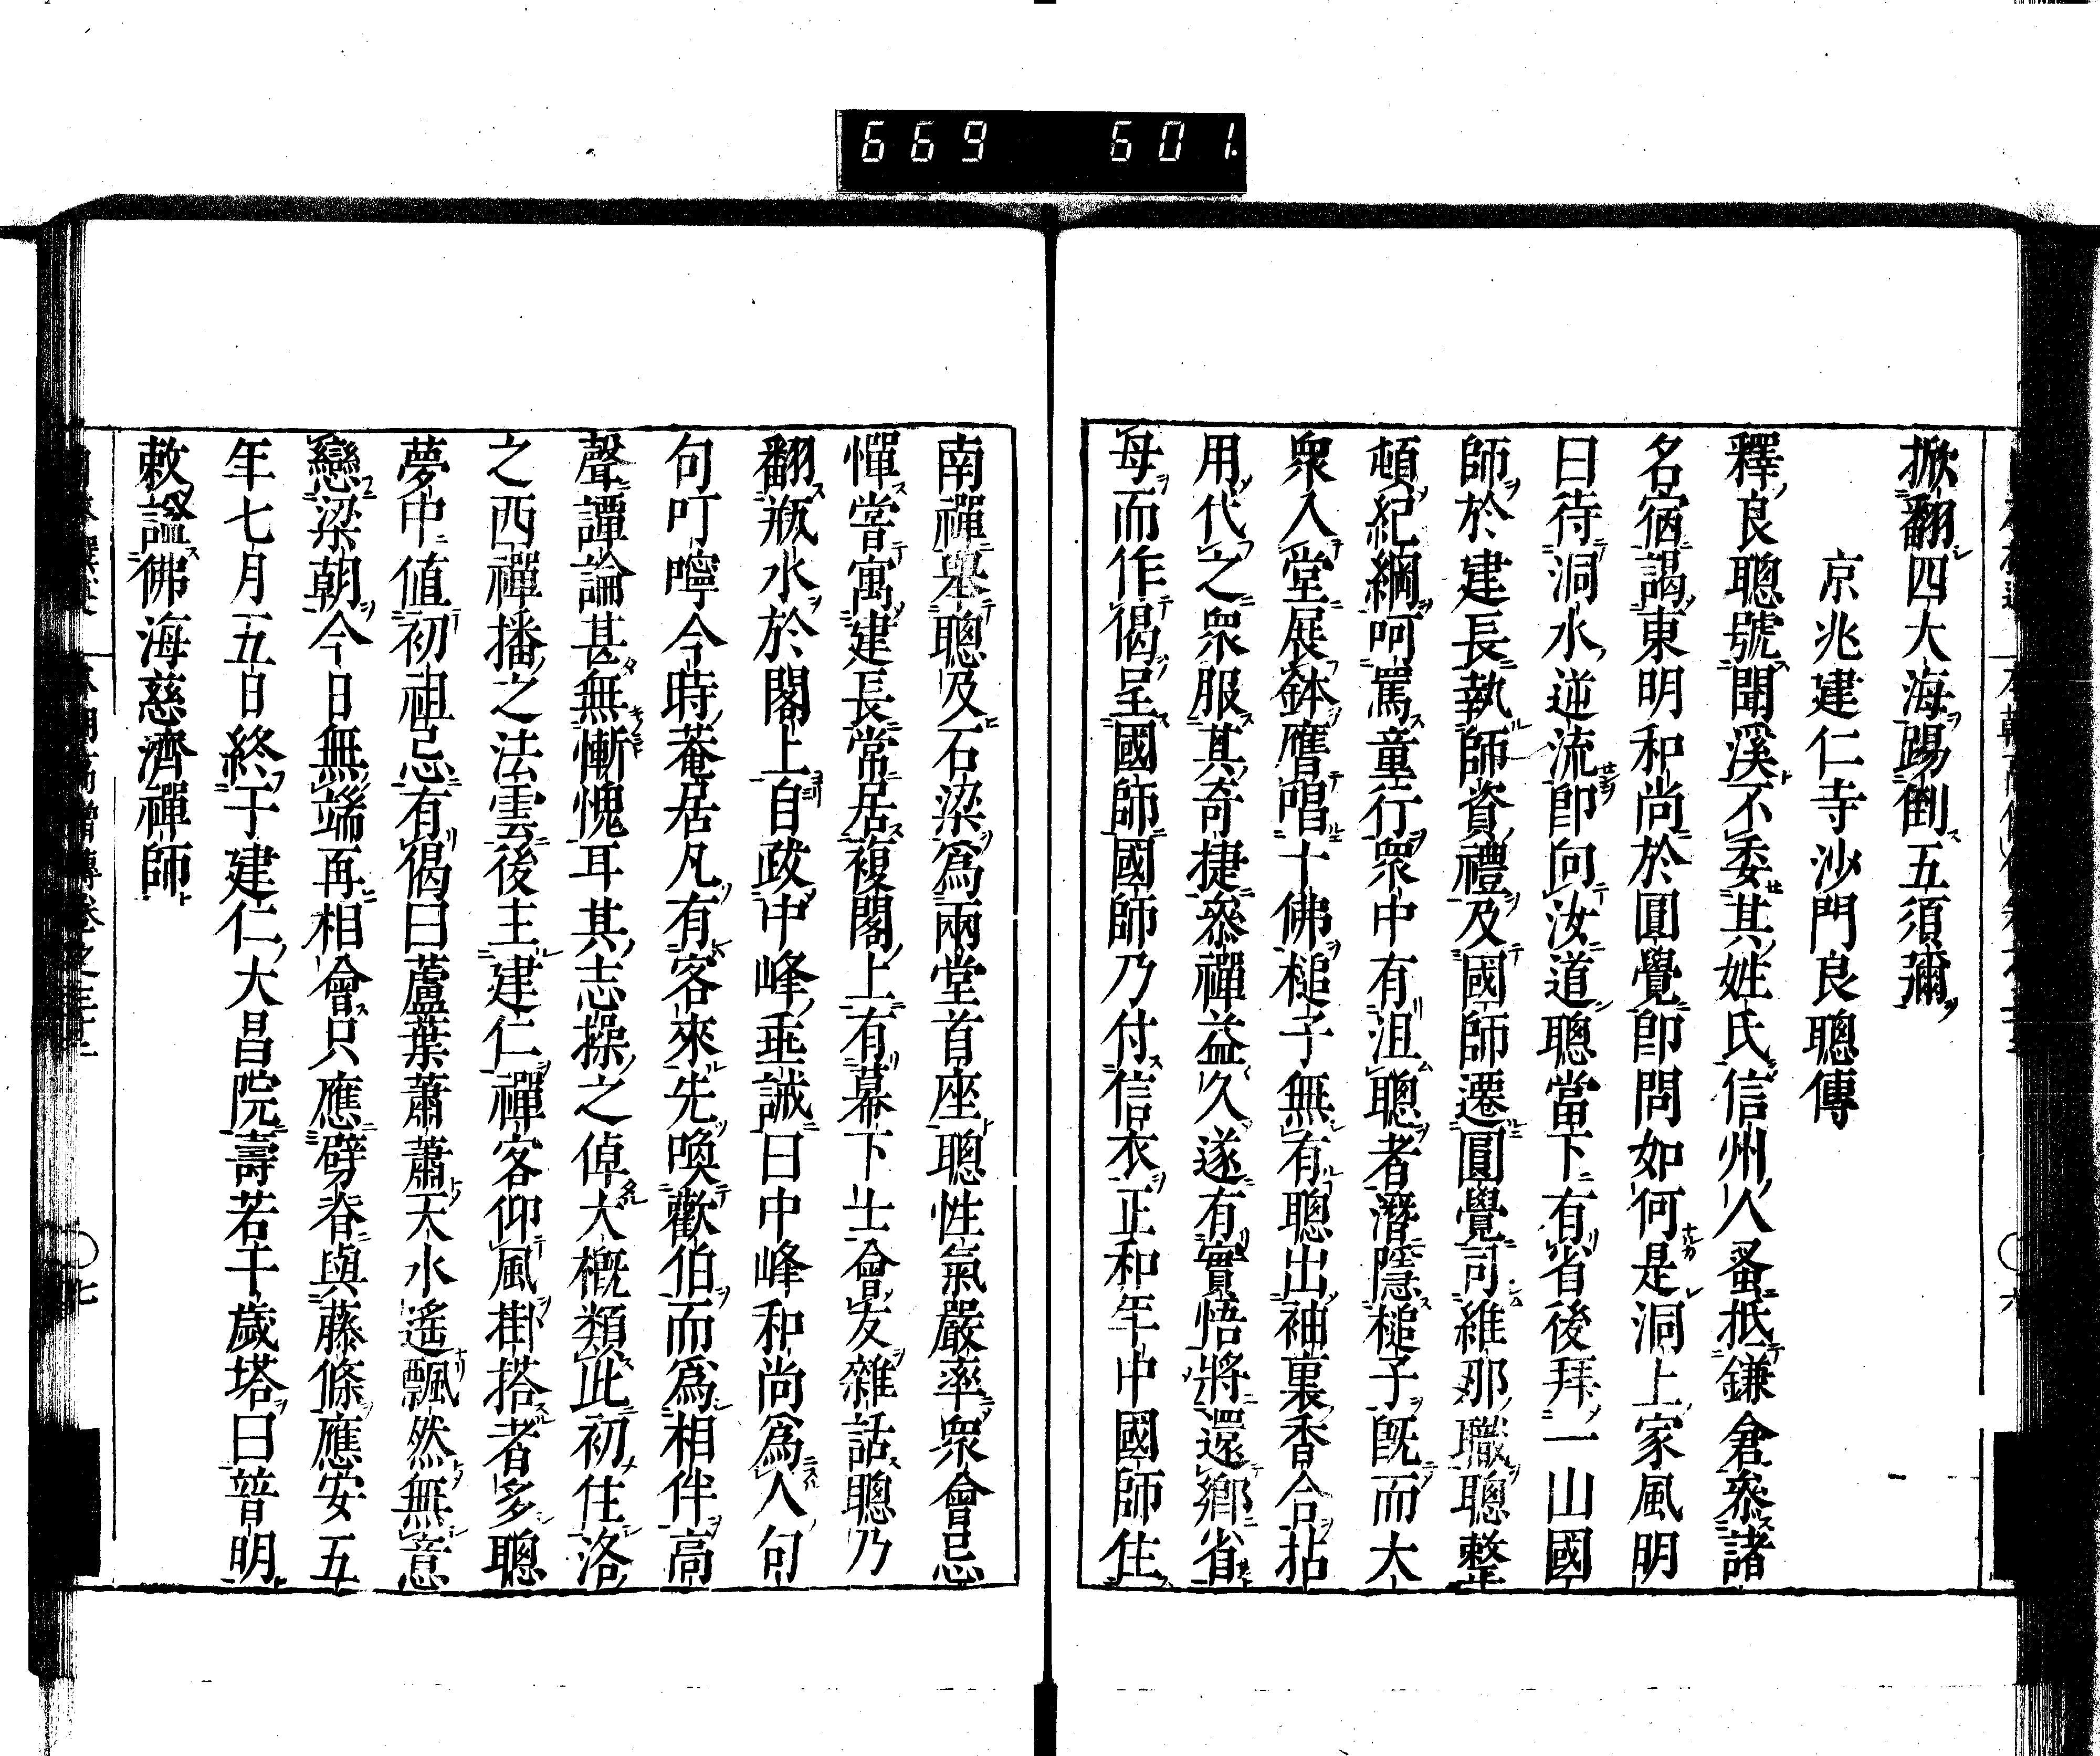 669 601.
掀翻四大海踢倒五須彌
京兆建仁寺沙門良聰傳
釋良聰號聞溪不委其姓氏信州人蚤抵鎌倉參諸
名宿謁東明和尚於圓覺卽問如何是洞上家風明
曰待洞水逆流卽向汝道聰當下有省後拜一山國
師於建長執師資禮及國師遷圓覺司維那職聰整
頓紀綱呵罵童行衆中有沮聰者潛隱槌子旣而大
衆入堂展鉢應唱十佛槌子無有聰出袖裏香合拈
用代之衆服其奇捷參禪益久遂有實悟將還鄉省
母而作偈呈國師國師乃付信衣正和年中國師住
南禪舉聰及石梁爲兩堂首座聰性氣嚴率衆會忌
憚嘗寓建長常居複閣上有幕下士會友雜話聰乃
翻瓶水於閣上自政中峰垂誡曰中峰和尚爲人句
句叮嚀今時菴居凡有客來先喚歡伯而爲相伴高
聲譚論甚無慚愧耳其志操之倬大槪類此初住洛
之西禪播之法雲後主建仁禪客仰風掛搭者多聰
夢中値初祖忌有偈曰蘆葉蕭蕭天水遙飄然無意
戀梁朝今日無端再相會只應劈脊與藤條應安五
年七月五日終于建仁大昌院壽若干歲塔曰普明
敕諡佛海慈濟禪師